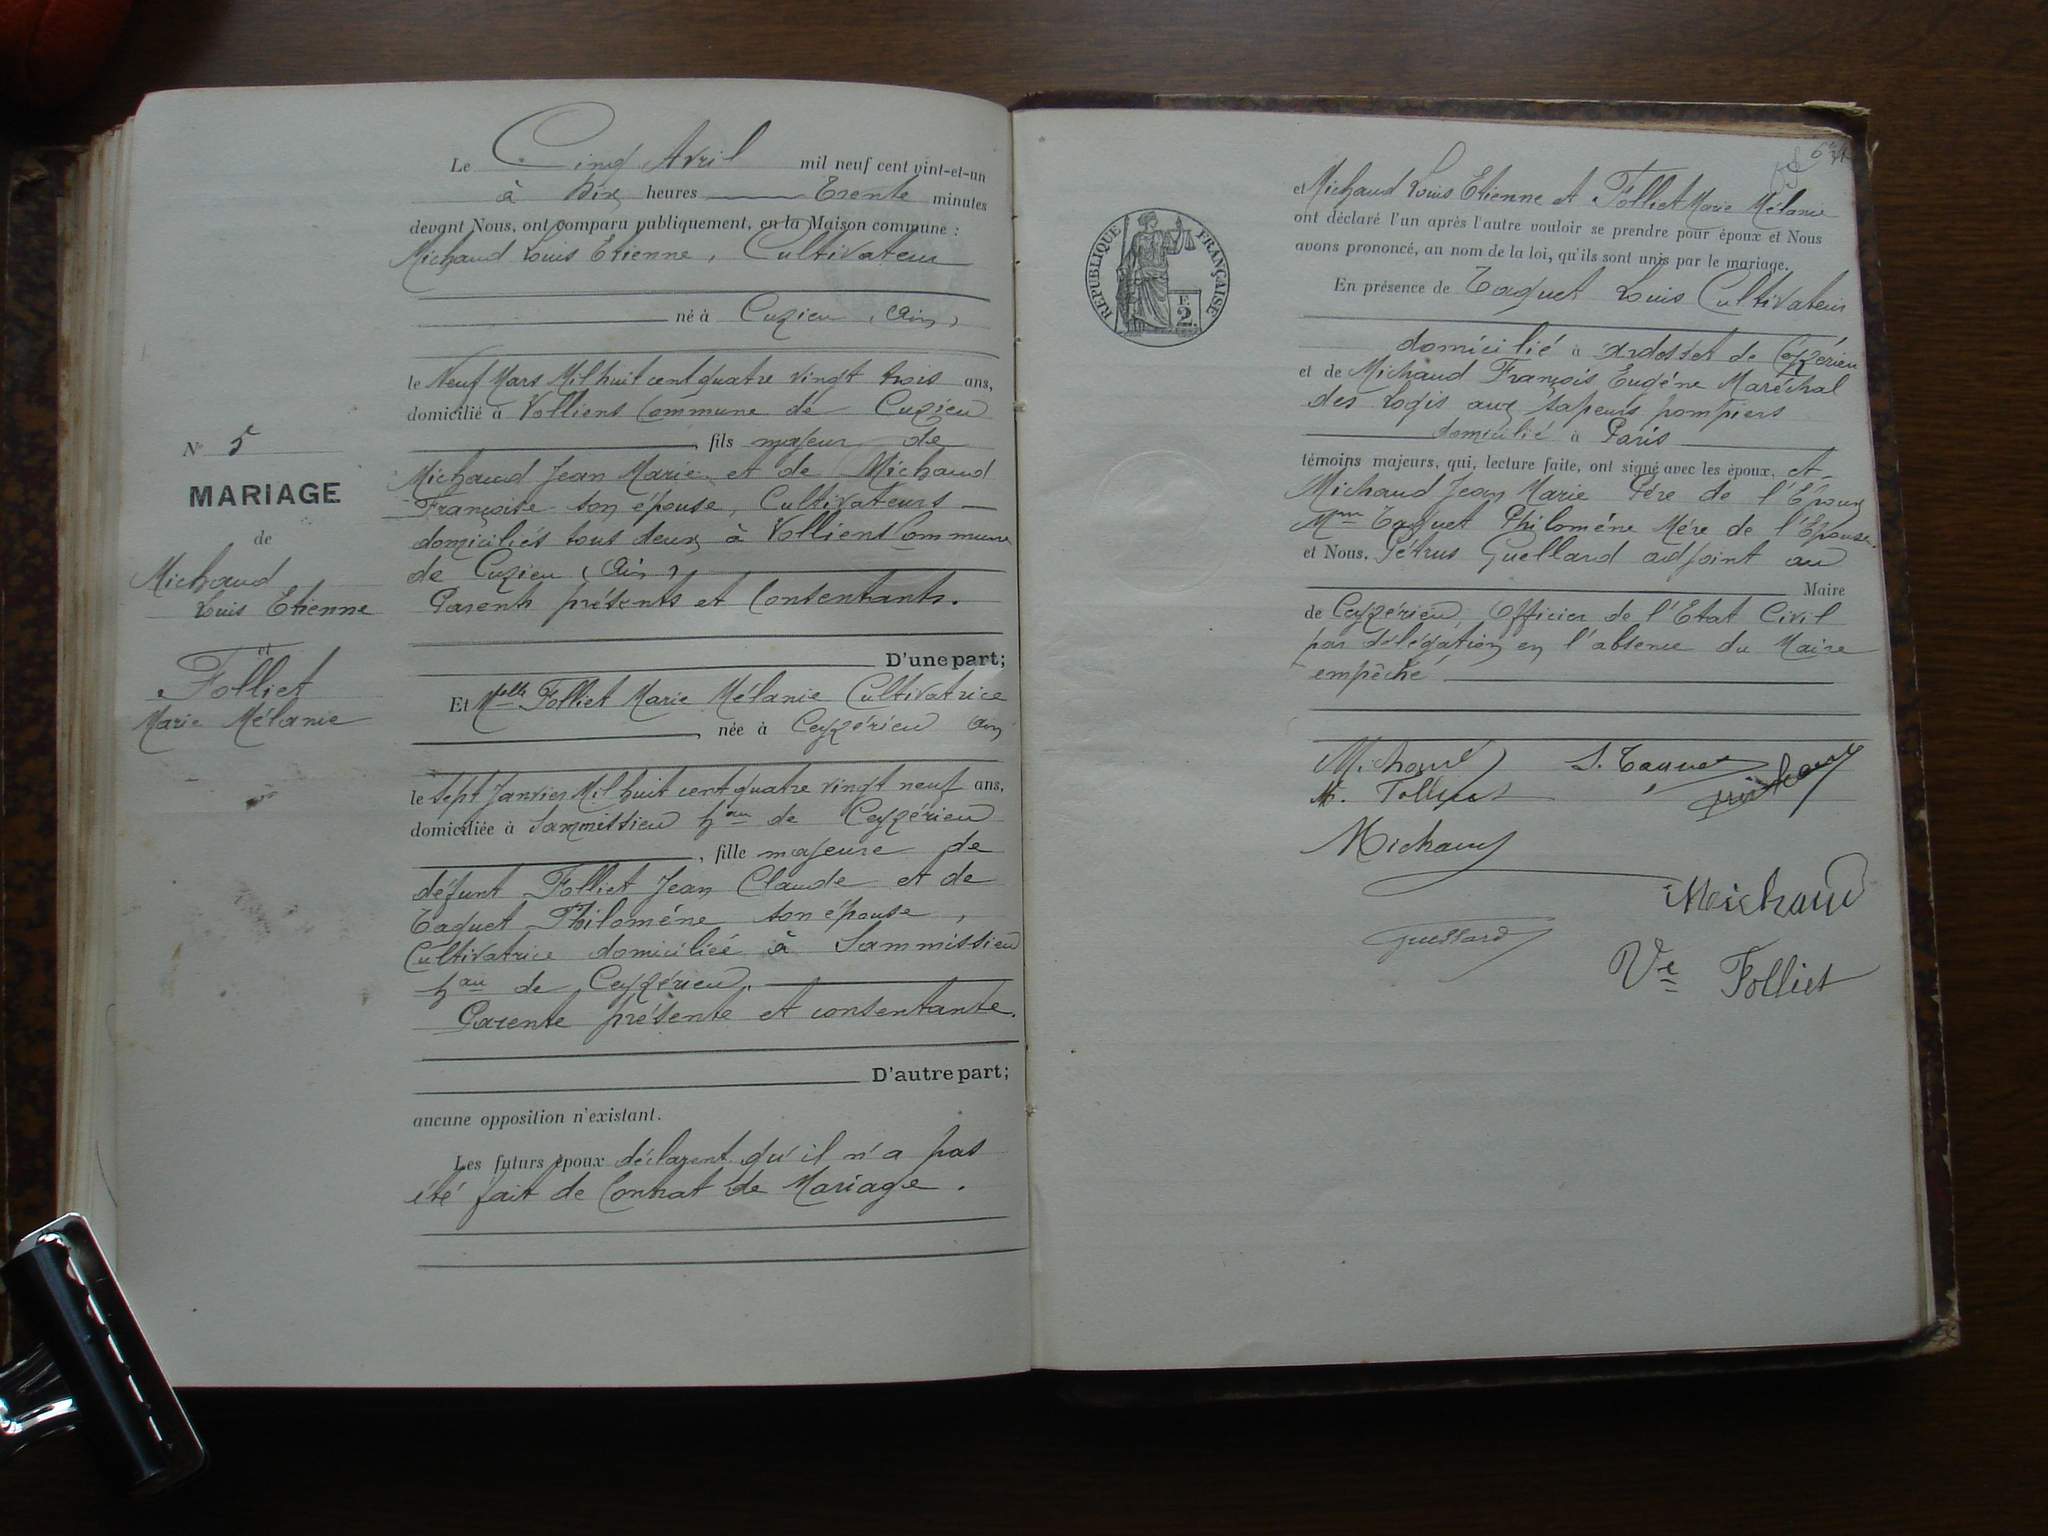 Le Cinq Avril mil neuf cent vint-et-un
à Dix heures Trente minutes
devant Nous, ont comparu publiquement, en la Maison commune :
Michaud Louis Etienne, Cultivateur
né à Cuzieu (Ain)
le Neuf Mars Mil huit cent quatre vingt trois ans,
domicilié à Volliens Commune de Cuzieu
, fils majeur de
Michaud Jean Marie et de Michaud
Françoise son épouse, Cultivateurs
domiciliés tous deux à Volliens Commune
de Cuzieu (Ain)
Parents présents et Consentants.
D'une part;
Et Melle Folliet Marie Mélanie Cultivatrice
, née à Ceyzérieu Ain
le Sept Janvier Mil huit cent quatre vingt neuf ans,
domiciliée à Sammissieu hau de Ceyzérieu
, fille majeure de
défunt Folliet Jean Claude et de
Taquet Philomène son épouse,
Cultivatrice domiciliée à Sammissieu
hau de Ceyzérieu.
Parente présente et consentante.
D'autre part;
aucune opposition n'existant.
Les futurs époux déclarent qu'il n'a pas
été fait de Contrat de Mariage.
N° 5
MARIAGE
de
Michaud
Louis Etienne
et
Folliet
Marie Mélanie
et Michaud Louis Etienne et Folliet Marie Mélanie
ont déclaré l'un après l'autre vouloir se prendre pour époux et Nous
avons prononcé, au nom de la loi, qu'ils sont unis par le mariage.
En présence de Taquet Louis Cultivateur
domicilié à Ardosset de Ceyzérieu
et de Michaud François Eugène Maréchal
des Logis aux sapeurs pompiers
domicilié à Paris
témoins majeurs, qui, lecture faite, ont signé avec les époux, et
Michaud Jean Marie Père de l'Époux
Mme Taquet Philomène Mère de l'Épouse.
et Nous, Pétrus Guellard adjoint au
Maire
de Ceyzérieu, Officier de l'Etat Civil
par délégation en l'absence du Maire
empêché
RÉPUBLIQUE FRANÇAISE
E
2
Michaud L. Taquet
M. Folliet
Michaud
Michaud
Guellard
Ve Folliet